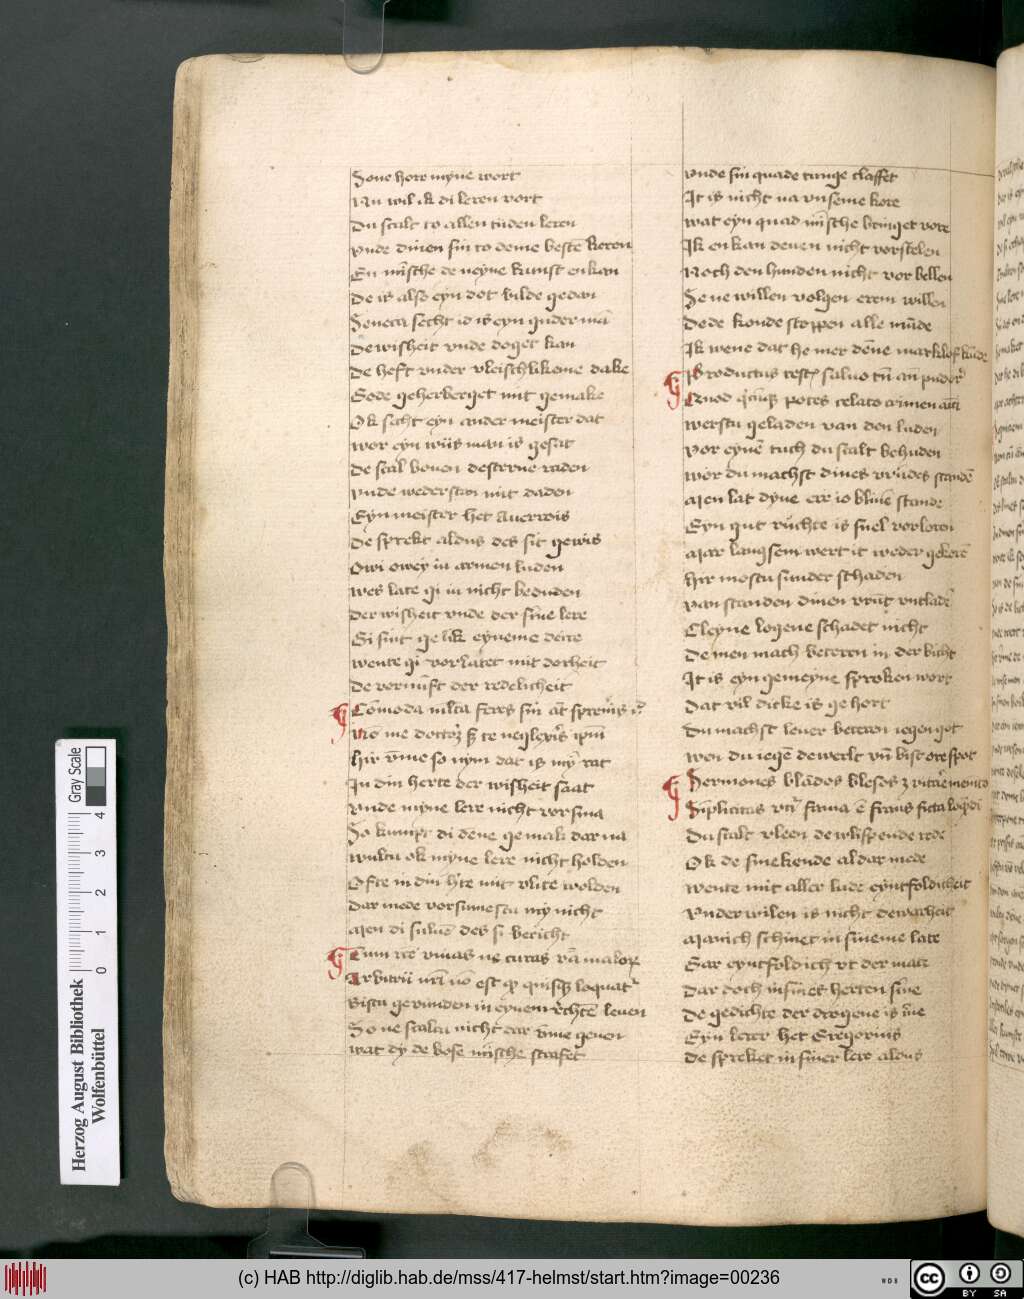 Sone hore myne wort
Nu wil ik di leren vort
Du scalt to allen tiiden leren
vnde dinen sin to deme beste keren
En mīsche de neyne kunst en kan
De is also eyn dot bilde gedan
Seneca secht id is eyn guder mā
De wisheit vnde doget kan
De heft vnder vleischlikeme dake
Gode geherberget mit gemake
Ok secht eyn ander meister dat
wor eyn wiis man is gesat
De scal bouen de sterne raden
vnde wederstan mit daden
Eyn meister het Auerrois
De sprekt aldus des sit gewis
Owi owey iu armen luden
wes late gi iu nicht beduden
Der wisheit vnde der sīne lere
Gi sint gelik eyneme dere
wente gi vorlatet mit dorheit
De vornūft der redelicheit
Cōmoda mlta feres sin aūt spreueris
No me doctorē sȝ te neglexeris ipm
Hir vmme so nym dat is my rat
In din herte der wisheit saat
Vnde myne lere nicht vorsma
So kumpt di dene gemak dar na
wultu ok myne lere nicht holden
Ofte in din hte mit vlite wolden
Dar mede vorsumestu my nicht
Men di suluē des si bericht
Cum recte viuas ne cures vba malorum
Arbitrii nri nō est qd quisqȝ loquatr
Bistu gevunden in eynem rechtē leuen
So ne scaltu nicht dar vmme geuen
wat dy de bose mīsche strafet
vnde sin quade tunge claffet
It is nicht na vnseme kore
wat eyn quad mīsche bringet vore
Ik en kan deuen nicht vorstelen
Noch den hunden nicht vor bellen
Se ne willen volgen erem willen
De de konde stoppen alle mūde
Ik wene dat he mer dēne marklof kūde
Productus testis saluo tn̄ an̄ pudore
Quod qcūqȝ potes celato crimen amici
werstu geladen van den luden
vor eynē tuch du scalt behuden
wor du machst dines vrūdes scandē
Men lat dyne ere io bliuē stande
Eyn gut ruchte is snel vorloren
Mar langsem wert it weder gekorē
Hir mostu sunder schaden
van scanden dinen vrūt vntladē
Cleyne logene schadet nicht
De men mach beteren in der bicht
It is eyn gemeyne sproken wort
Dat vil dicke is gehort
Du machst leuer beteren iegen got
wen du iegē de werlt vn̄ bist ore spot
Sermones blādos blesos ȝ vitare memento
Siplicitas veri fama ē fraus ficta loqdi
Du scalt vleen de wlispende rede
Ok de smekende aldar mede
wente mit aller lude eyntfoldicheit
Vnderwilen is nicht de warheit
Manich schinet in sineme late
Gar eyntfoldich vt der mate
Dar doch in sīnes herten sīne
De gedichte der drogene is īne
Eyn lerer het Gregorius
De spreket in siner lere aldus
Herzog August Bibliothek
Wolfenbüttel
0 1 2 3 4
Gray Scale
(c) HAB http://diglib.hab.de/mss/417-helmst/start.htm?image=00236
WDB
cc BY SA